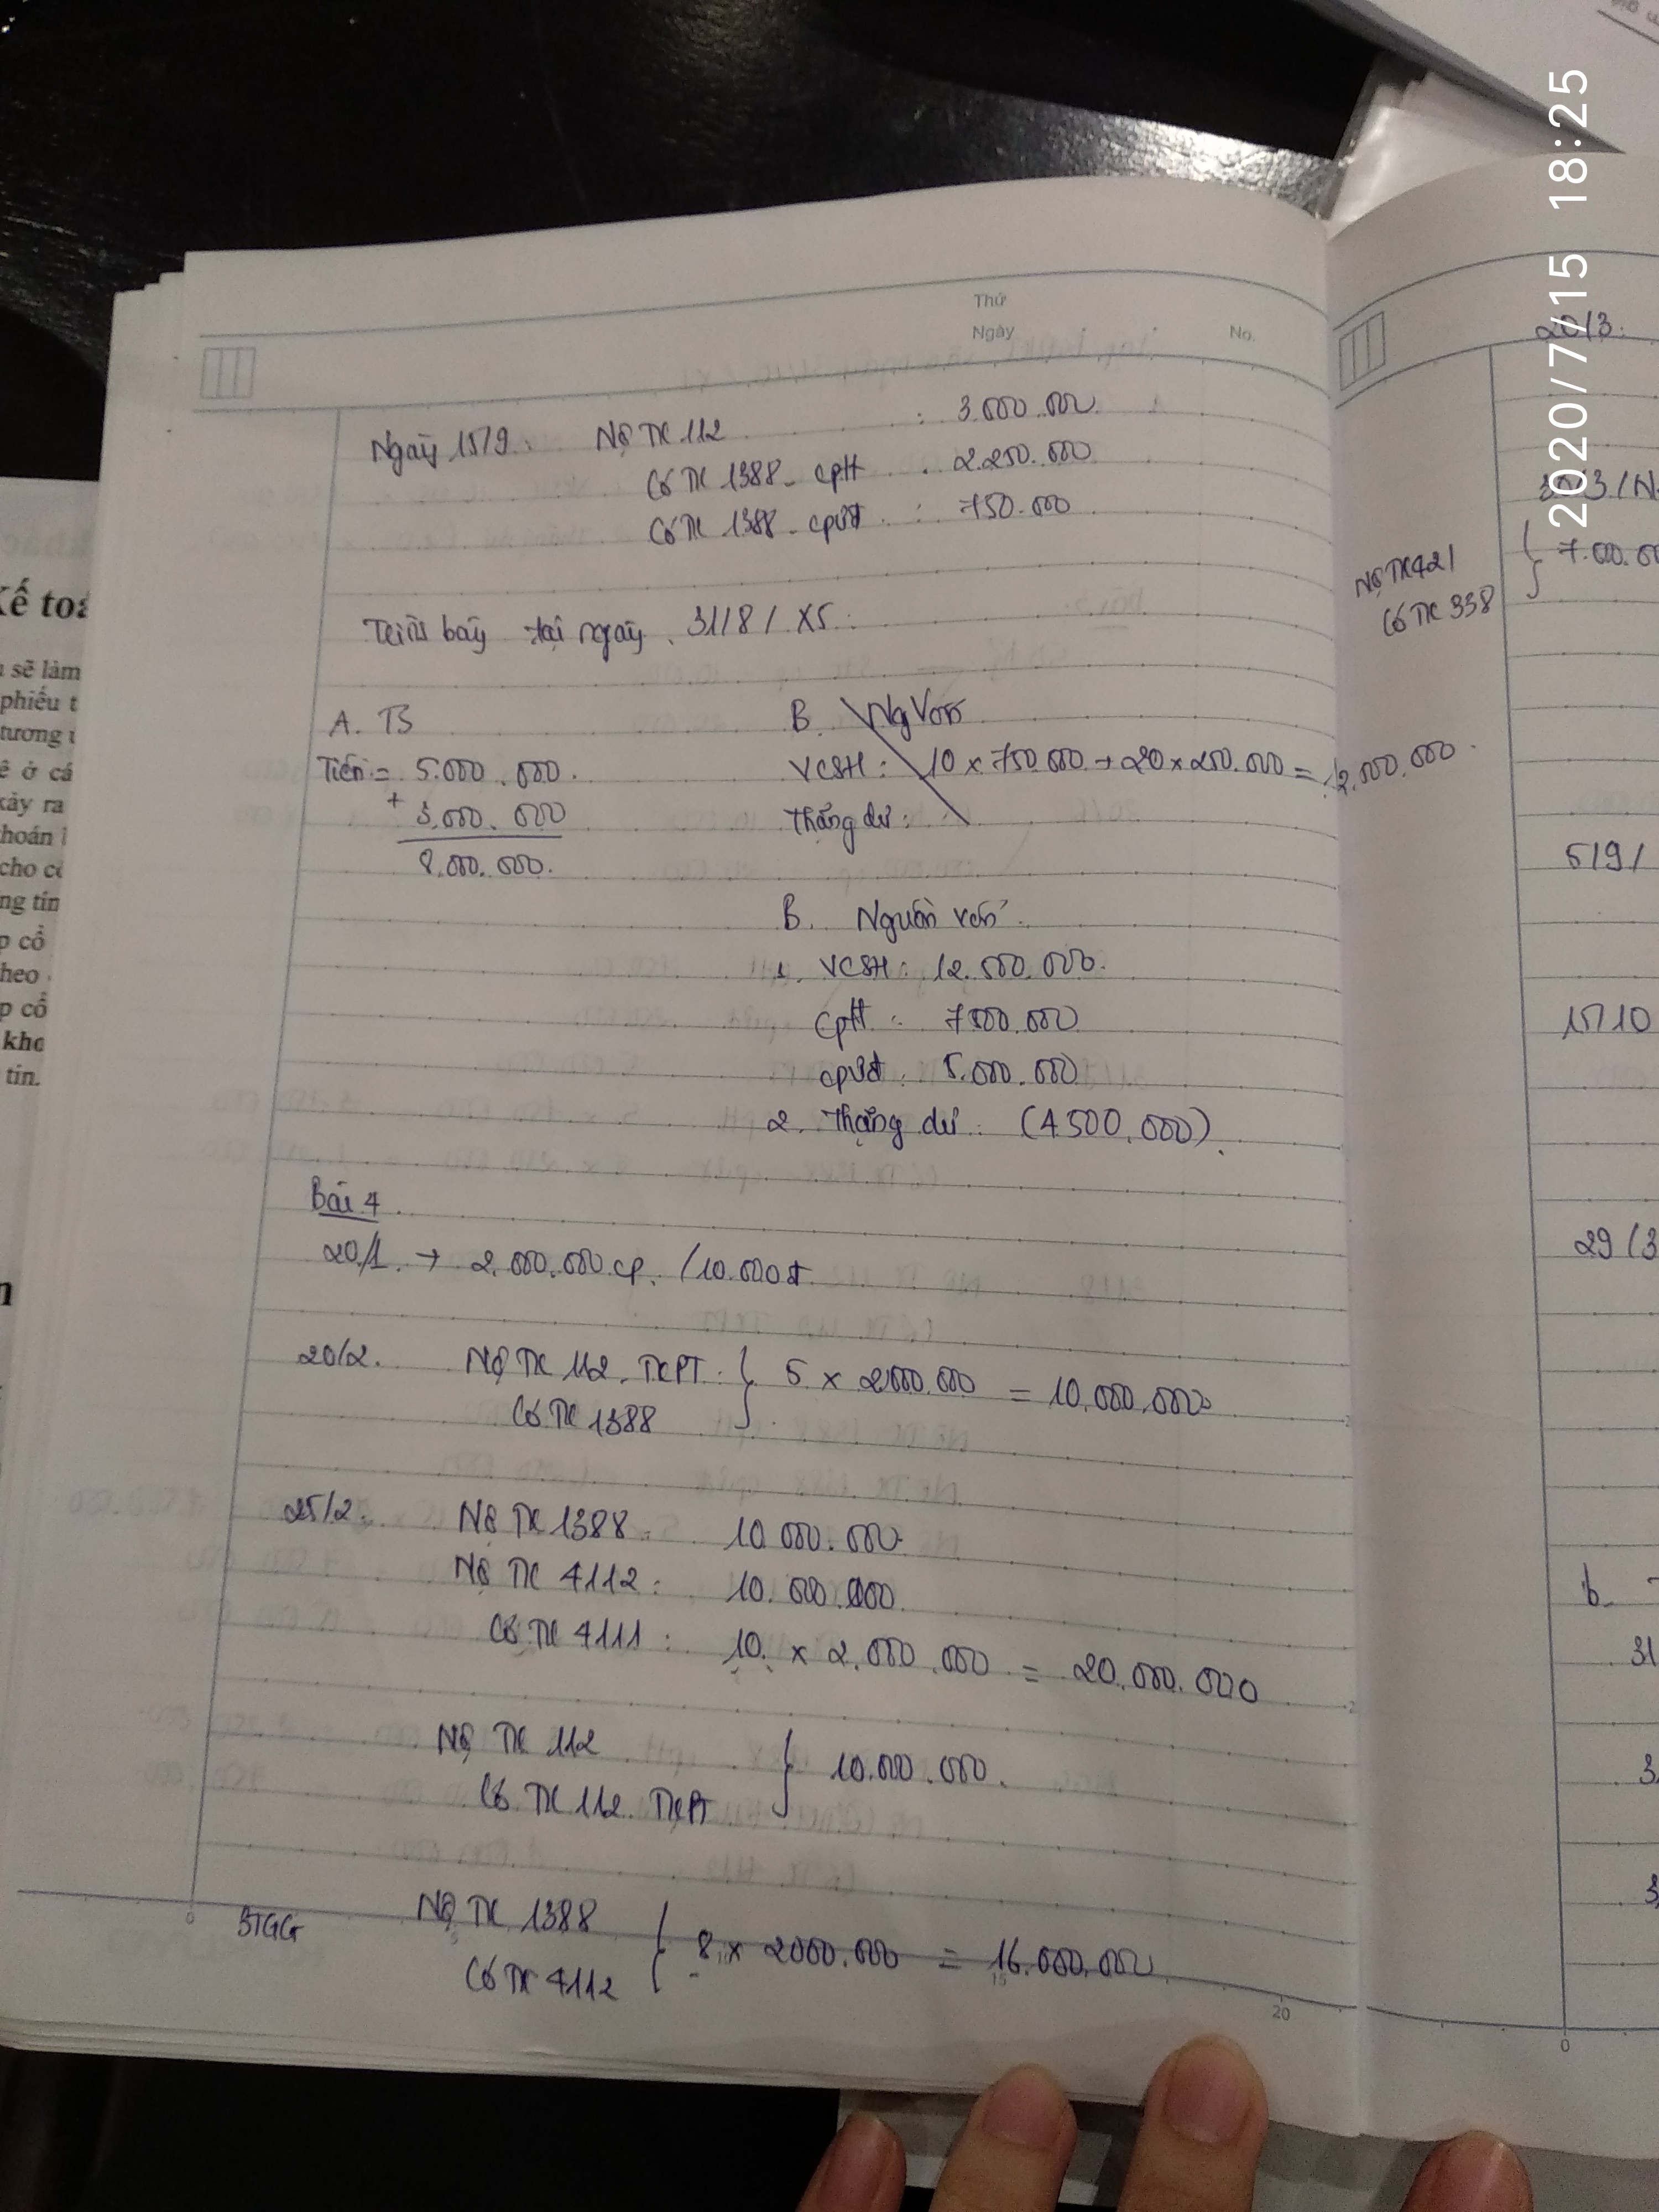 2020/7/15 18:25
Thứ
Ngày
No.
Ngày 15/9: Nợ TK 112 : 3.000.000
Có TK 1388 - cpH : 2.250.000
Có TK 1388 - cpưđ : 750.000
Trình bày tại ngày 31/8/X5:
A. TS
B. Ng Vốn
Tiền = 5.000.000.
VCSH: 10 x 750.000 + 20 x 250.000 = 12.000.000.
+ 3.000.000
Thặng dư:
8.000.000.
B. Nguồn vốn.
1. VCSH: 12.500.000.
cpH : 7500.000
cpưđ : 5.000.000
2. Thặng dư : (4500.000).
Bài 4
20/1. → 2.000.000 cp. /10.000đ.
20/2. Nợ TK 112. TKPT : } 5 x 2000.000 = 10.000.000
Có TK 1388
25/2: Nợ TK 1388: 10.000.000.
Nợ TK 4112: 10.000.000.
Có TK 4111 : 10. x 2.000.000 = 20.000.000
Nợ TK 112 } 10.000.000.
Có TK 112. TKPT
BTGG
Nợ TK 1388 { 8 x 2000.000 = 16.000.000
Có TK 4112
0
15
20
Kế toá
sẽ làm
phiếu t
tương
ê ở cá
xảy ra
hoán
cho c
ng tín
p cổ
heo
p cổ
khc
tin.
20/3:
Nợ TK 421 { 7.000.00
Có TK 338
5/9/
15/10
29/3
b.
31
3
3
0